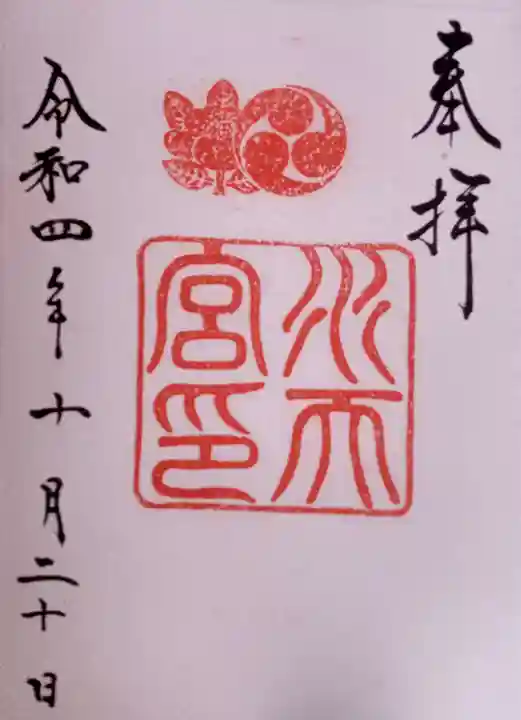 奉拝
水天
宮印
令和四年十月二十日